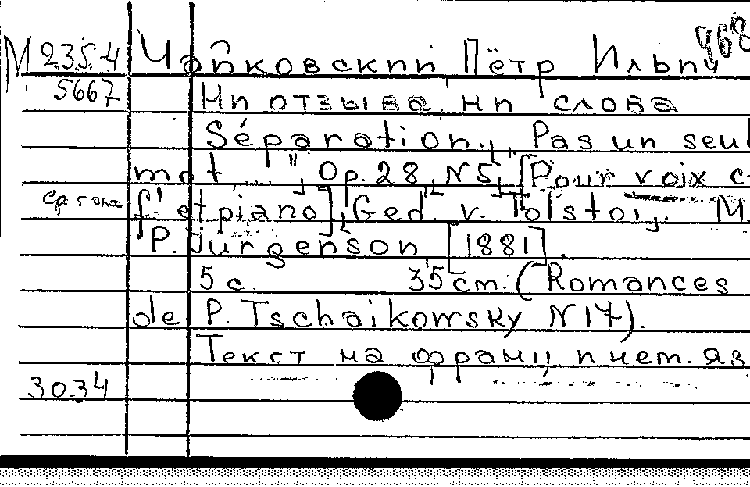 968
М 235.4 Чайковский Пётр Ильич
5667 Ни отзыва, ни слова
Séparation. „Pas un seul
mot...", Op. 28, N5, [Pour voix
f. et piano], Ged. v. Tolstoi. M.
P. Jurgenson [1881].
5 с. 35 cm. (Romances
de P. Tschaikowsky N 17).
Текст на франц. и нем. яз
3034